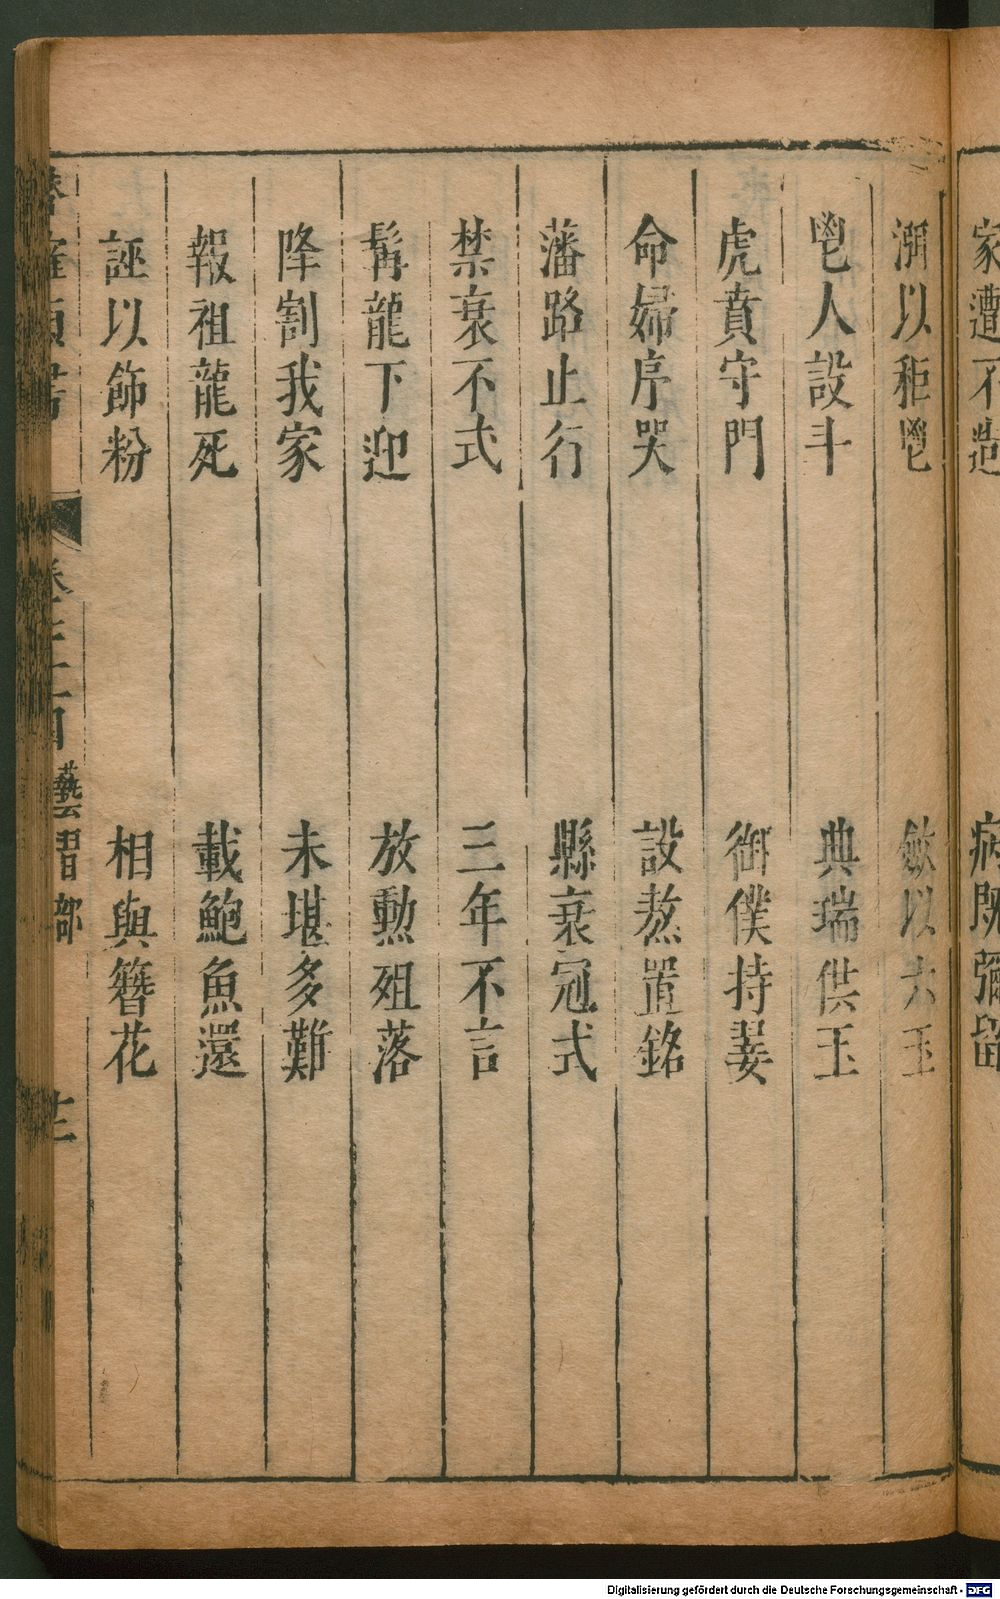 家遭不造 病既彌留
渳以秬鬯 斂以六玉
鬯人設斗 典瑞供玉
虎賁守門 御僕持翣
命婦序哭 設熬置銘
藩路止行 縣衰冠式
禁衰不式 三年不言
髯龍下迎 放勳殂落
降割我家 未堪多難
報祖龍死 載鮑魚還
誣以飾粉 相與簪花
藝習部
Digitalisierung gefördert durch die Deutsche Forschungsgemeinschaft - DFG